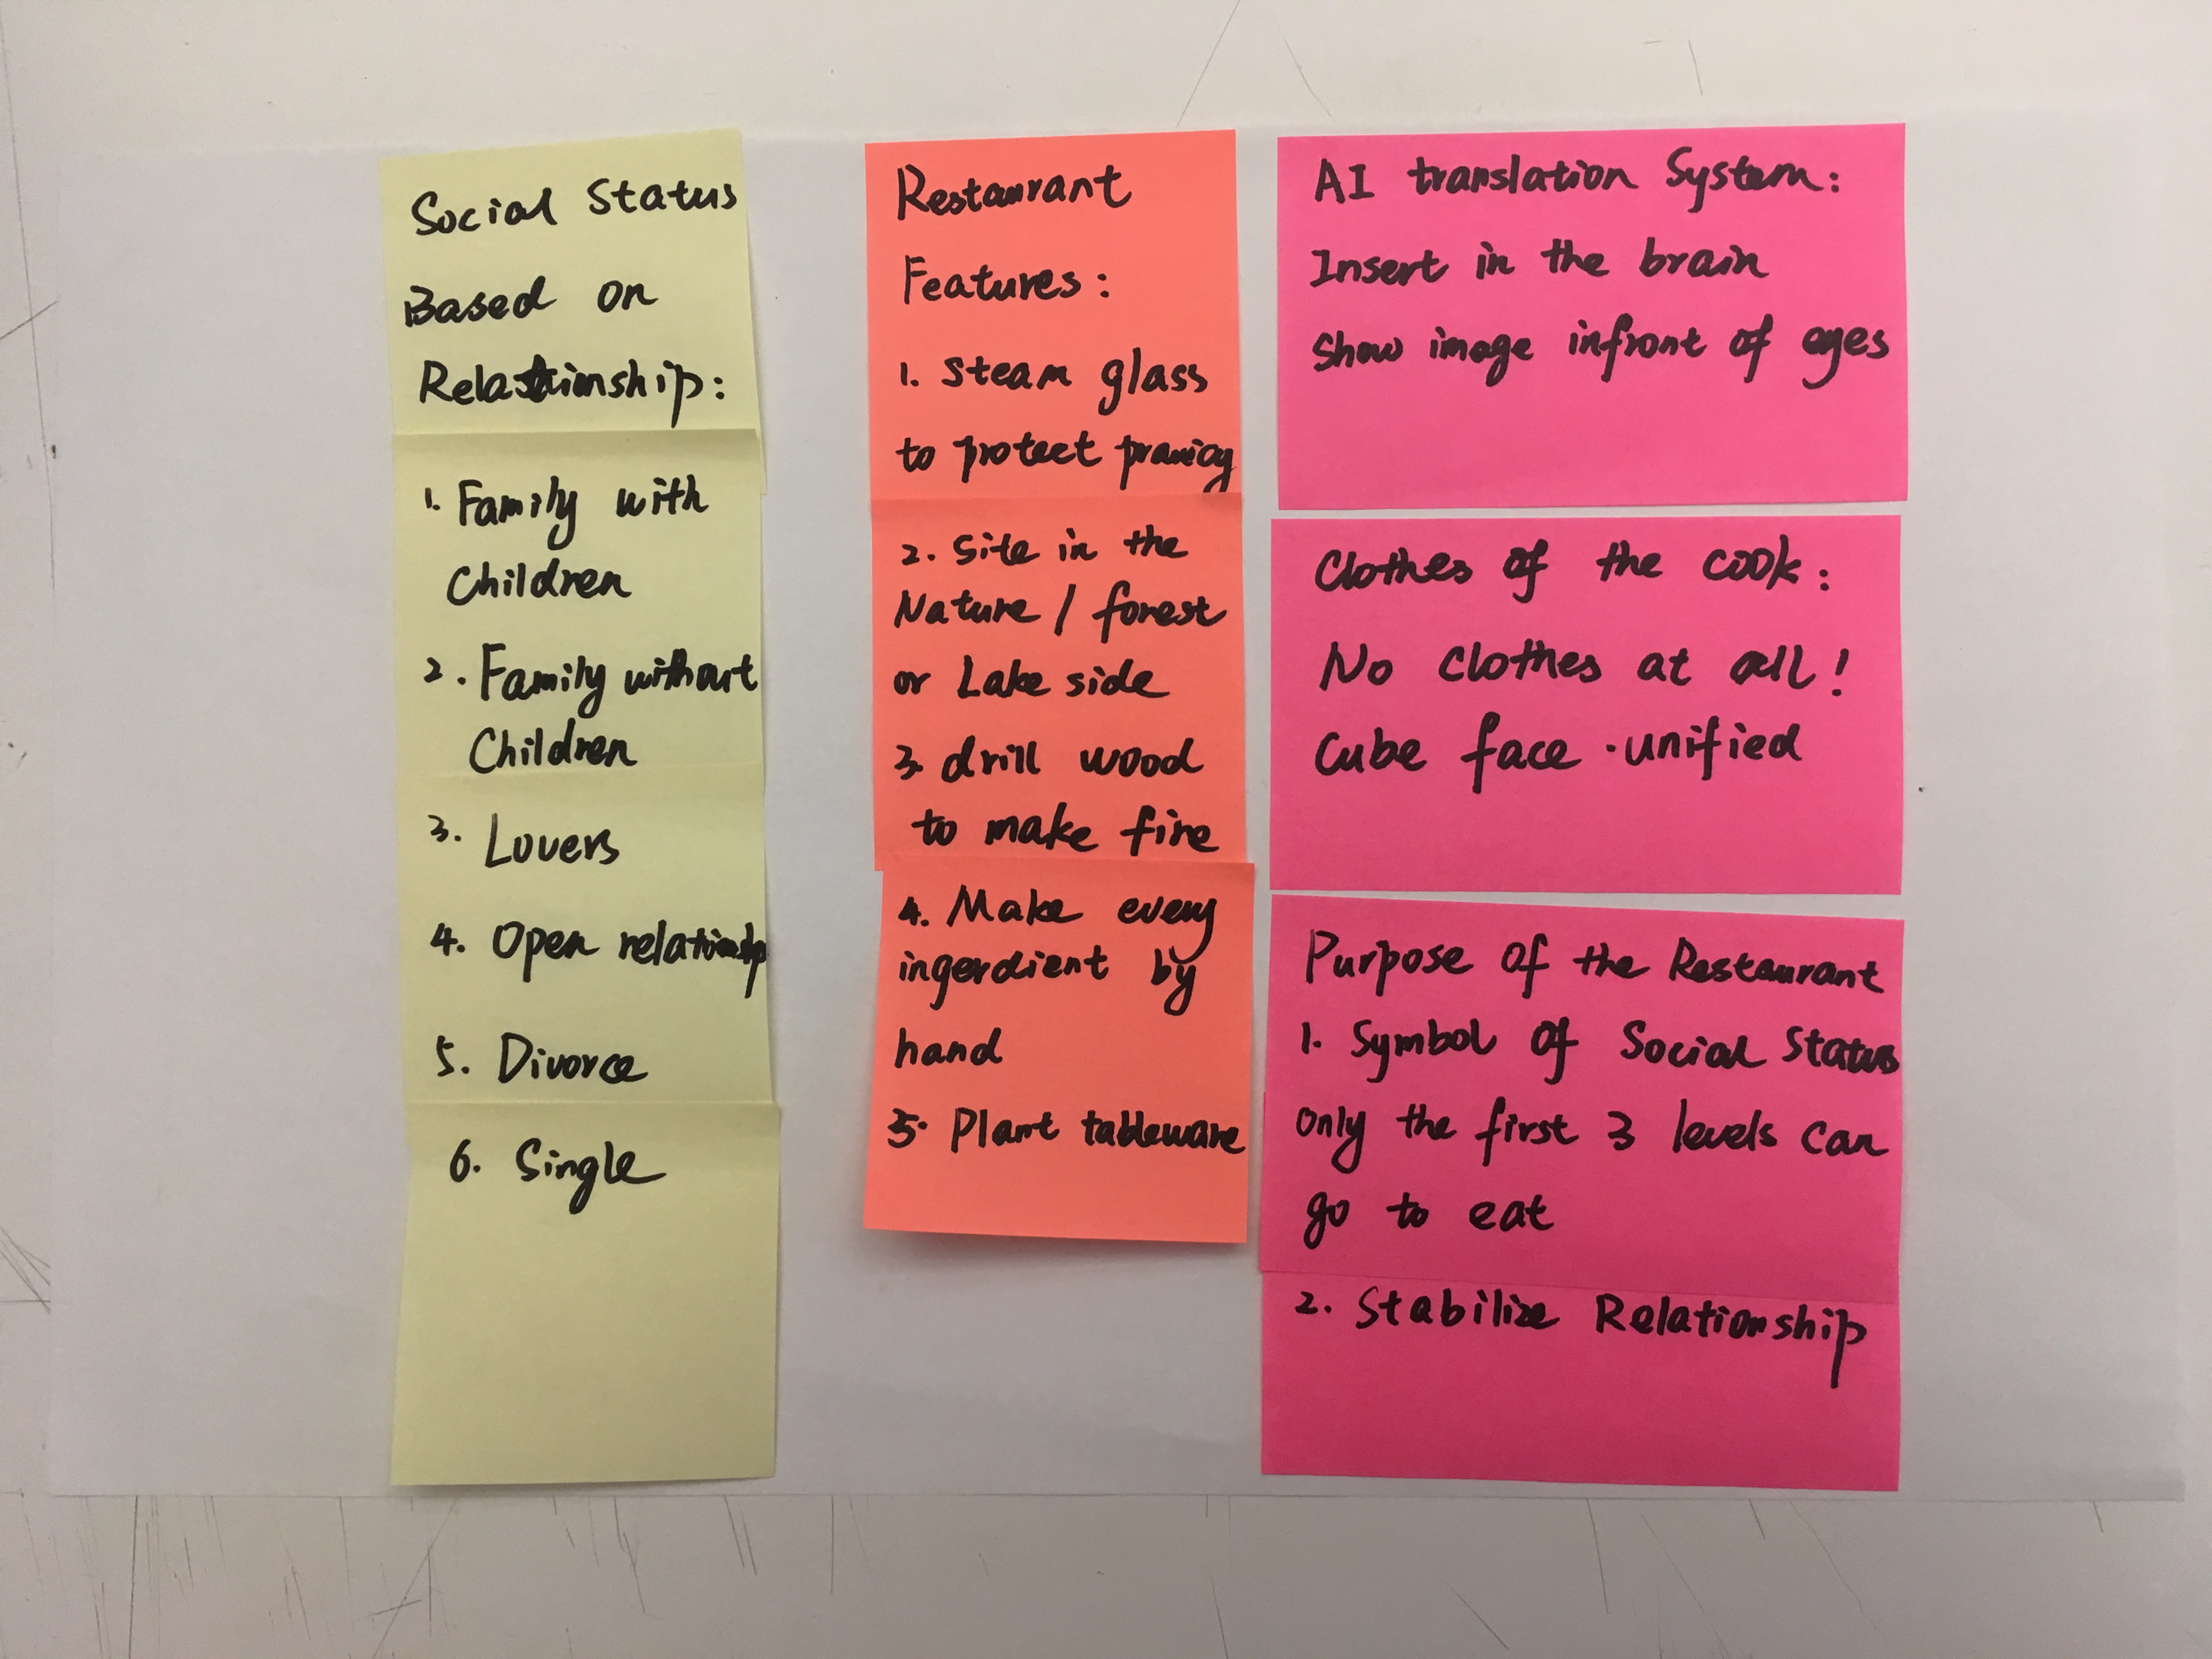 Social Status
Based on
Relationship:
1. Family with
Children
2. Family without
Children
3. Lovers
4. Open relationship
5. Divorce
6. Single
Restaurant
Features:
1. Steam glass
to protect pravicy
2. Site in the
Nature / forest
or Lake side
3. drill wood
to make fire
4. Make every
ingerdient by
hand
5. Plant tableware
AI translation System:
Insert in the brain
Show image infront of eyes
Clothes of the cook:
No clothes at all!
Cube face · unified
Purpose of the Restaurant
1. Symbol of Social Status
only the first 3 levels can
go to eat
2. Stabilize Relationship